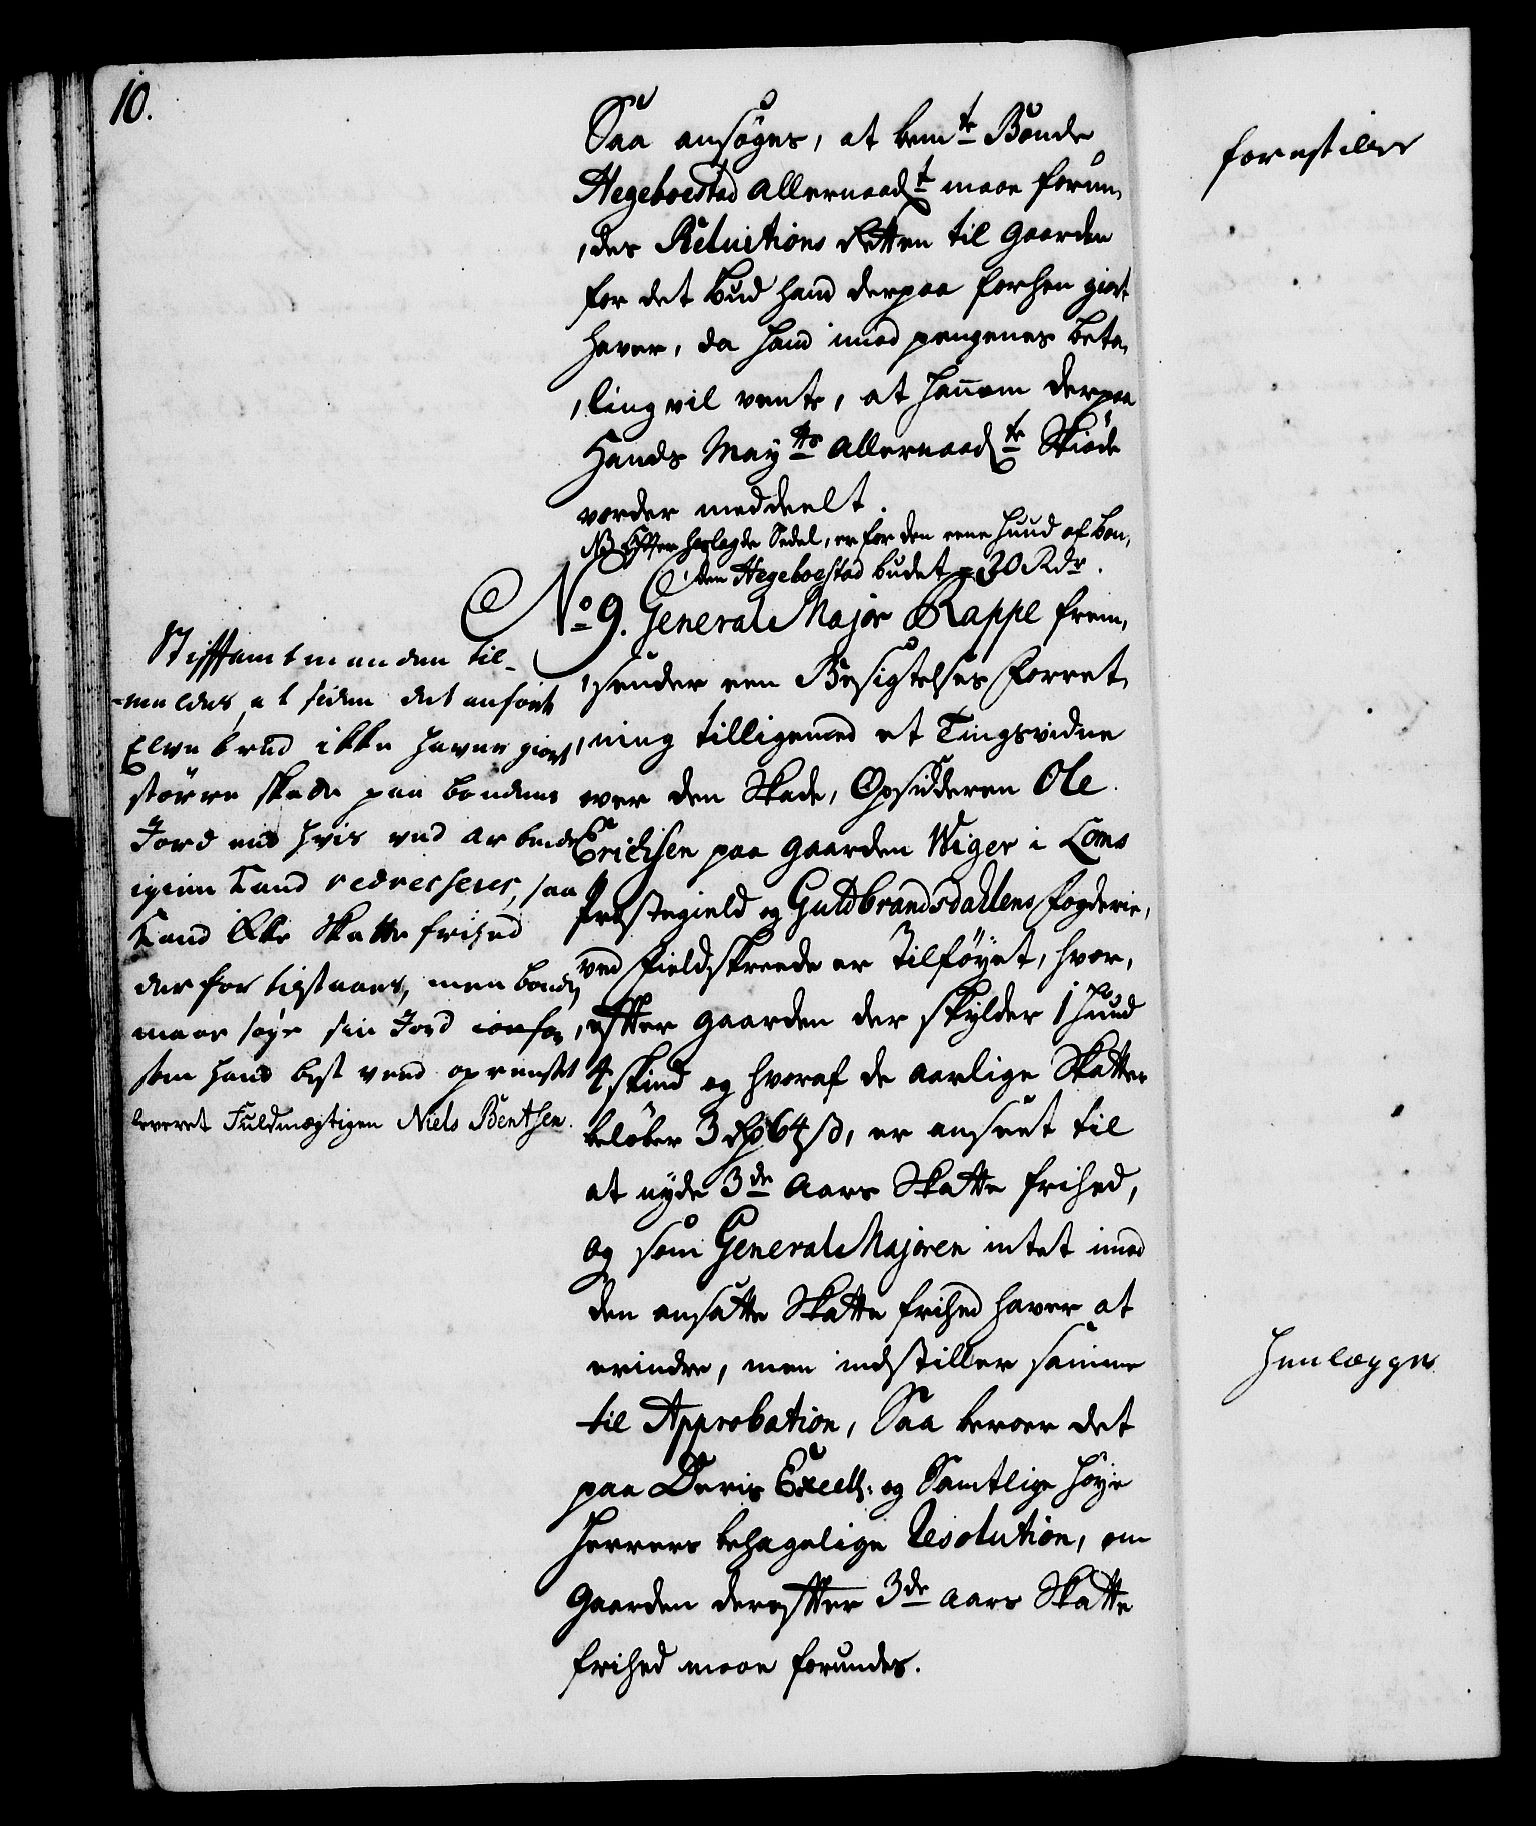 10.
Saa ansøges, at bemte Bonde
Hegeboestad allernaadt maae forun,
,des Reluitions Retten til gaarden
for det bud hand derpaa forhen giort
haver, da hand imod pengenes beta,
,ling vil vente, at hannem derpaa
Hands Mayts allernaadte Skiøde
vorder meddeelt.
NB Efter herlagde Sedel, er for den eene Huud af bon,
den Hegeboestad budet 30 Rdr.
No 9. General Major Rappe frem,
,sender een Besigtelses forret,
,ning tilligemed et Tingsvidne
over den Skade, Opsidderen Ole
Erichsen paa gaarden Wiger i Loms
Præstegield og Guldbrandsdahlens fogderie,
ved fieldskreede er tilføyet, hvor,
,effter gaarden der skylder 1 Huud
4 skind og hvoraf de aarlige Skatter
beløber 3 Rd 64 s, er anseet til
at nyde 3de aars Skatte frihed,
og som General Majoren intet imod
den ansatte Skatte frihed haver at
erindre, men indstiller samme
til Approbation, Saa beroer det
paa Deris Excell: og Samtlige Høye
Herrers behagelige Resolution, om
gaarden dereffter 3de aars Skatte
frihed maae forundes.
Stiftamtmanden til-
-meldes, at siden det anførte
Elve brud ikke haver giort
større skade paa bondens
Jord end hvis ved arbeide
igien kand redresseres, saa
kand ikke Skatte frihed
derfor tilstaaes, men bonden
maae søge sin Jord
som hand best veed oprenset
leveret Fuldmægtigen Niels Bentsen.
forestilles
Henlægges